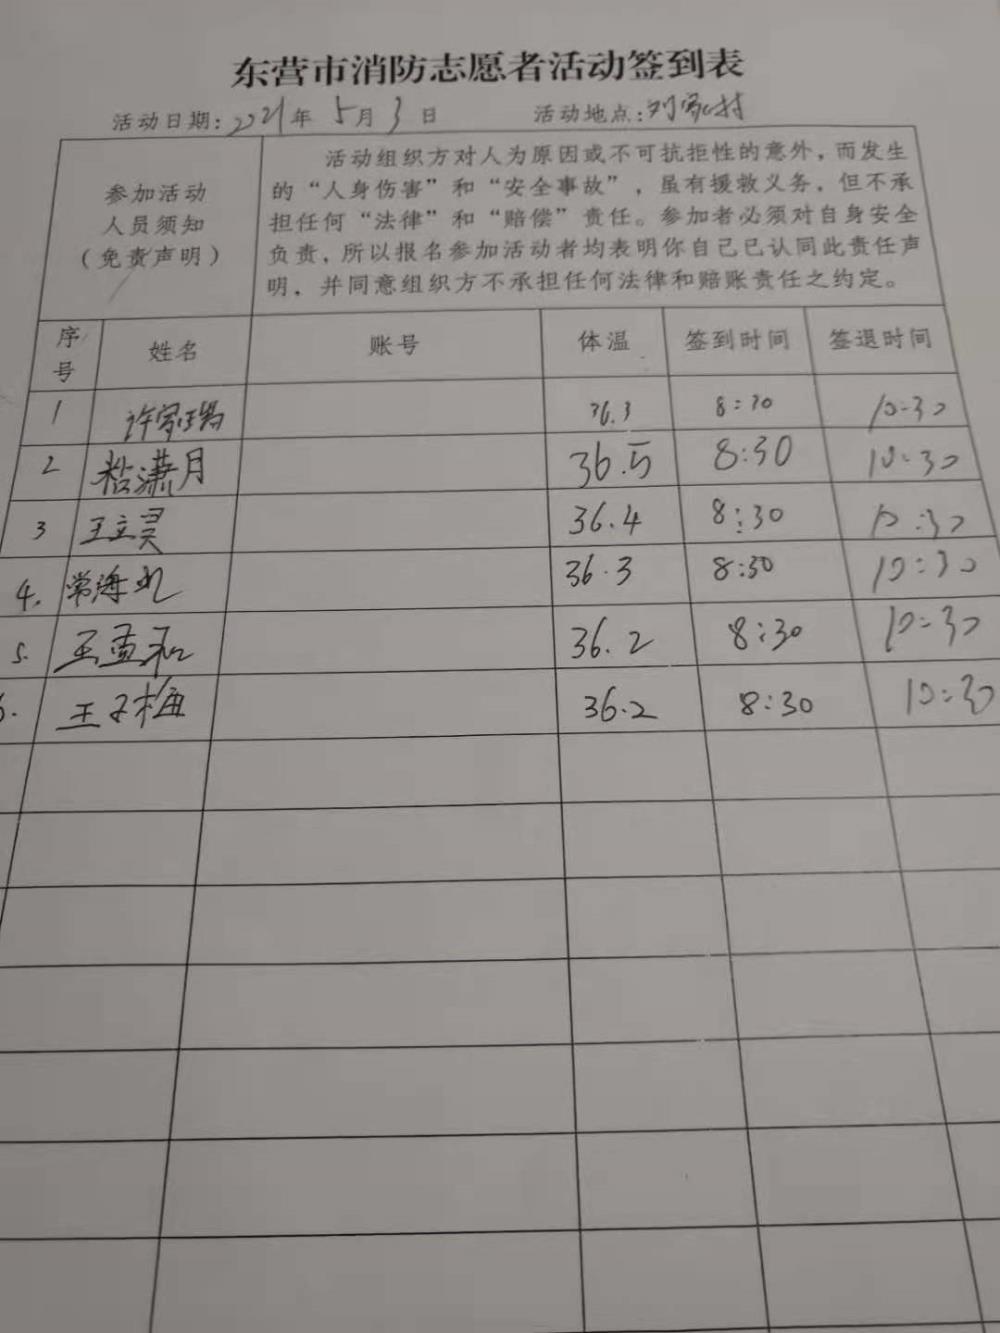 东营市消防志愿者活动签到表
活动日期:2021年5月3日 活动地点:刘家村
参加活动
人员须知
(免责声明)
活动组织方对人为原因或不可抗拒性的意外,而发生
的“人身伤害”和“安全事故”,虽有援救义务,但不承
担任何“法律”和“赔偿”责任。参加者必须对自身安全
负责,所以报名参加活动者均表明你自己已认同此责任声
明,并同意组织方不承担任何法律和赔账责任之约定。
序号 姓名 账号 体温 签到时间 签退时间
1 许家瑞 36.3 8:30 10:30
2 潇月 36.5 8:30 10:30
3 王立 36.4 8:30 10:30
4. 常海 36.3 8:30 10:30
5. 王孟和 36.2 8:30 10:30
6. 王子梅 36.2 8:30 10:30